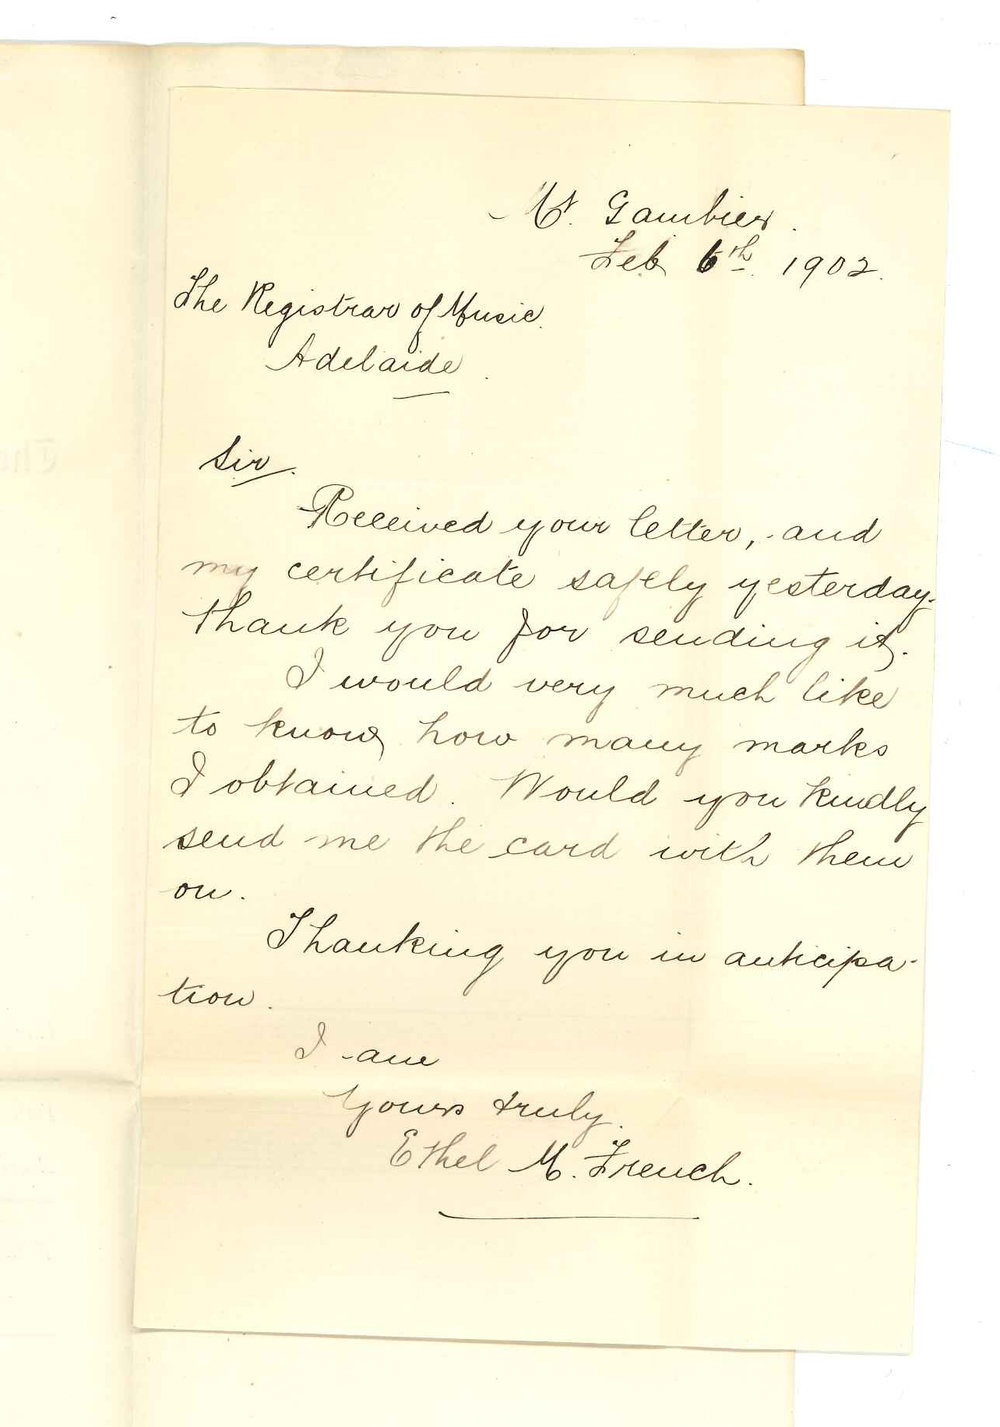 Mt. Gambier.
Feb 6th. 1902.
The Registrar of Music.
Adelaide.
Sir.
Received your letter, and
my certificate safely yesterday.
thank you for sending it.
I would very much like
to know how many marks
I obtained. Would you kindly
send me the card with them
on.
Thanking you in anticipa-
tion.
I am
Yours truly.
Ethel M. French.